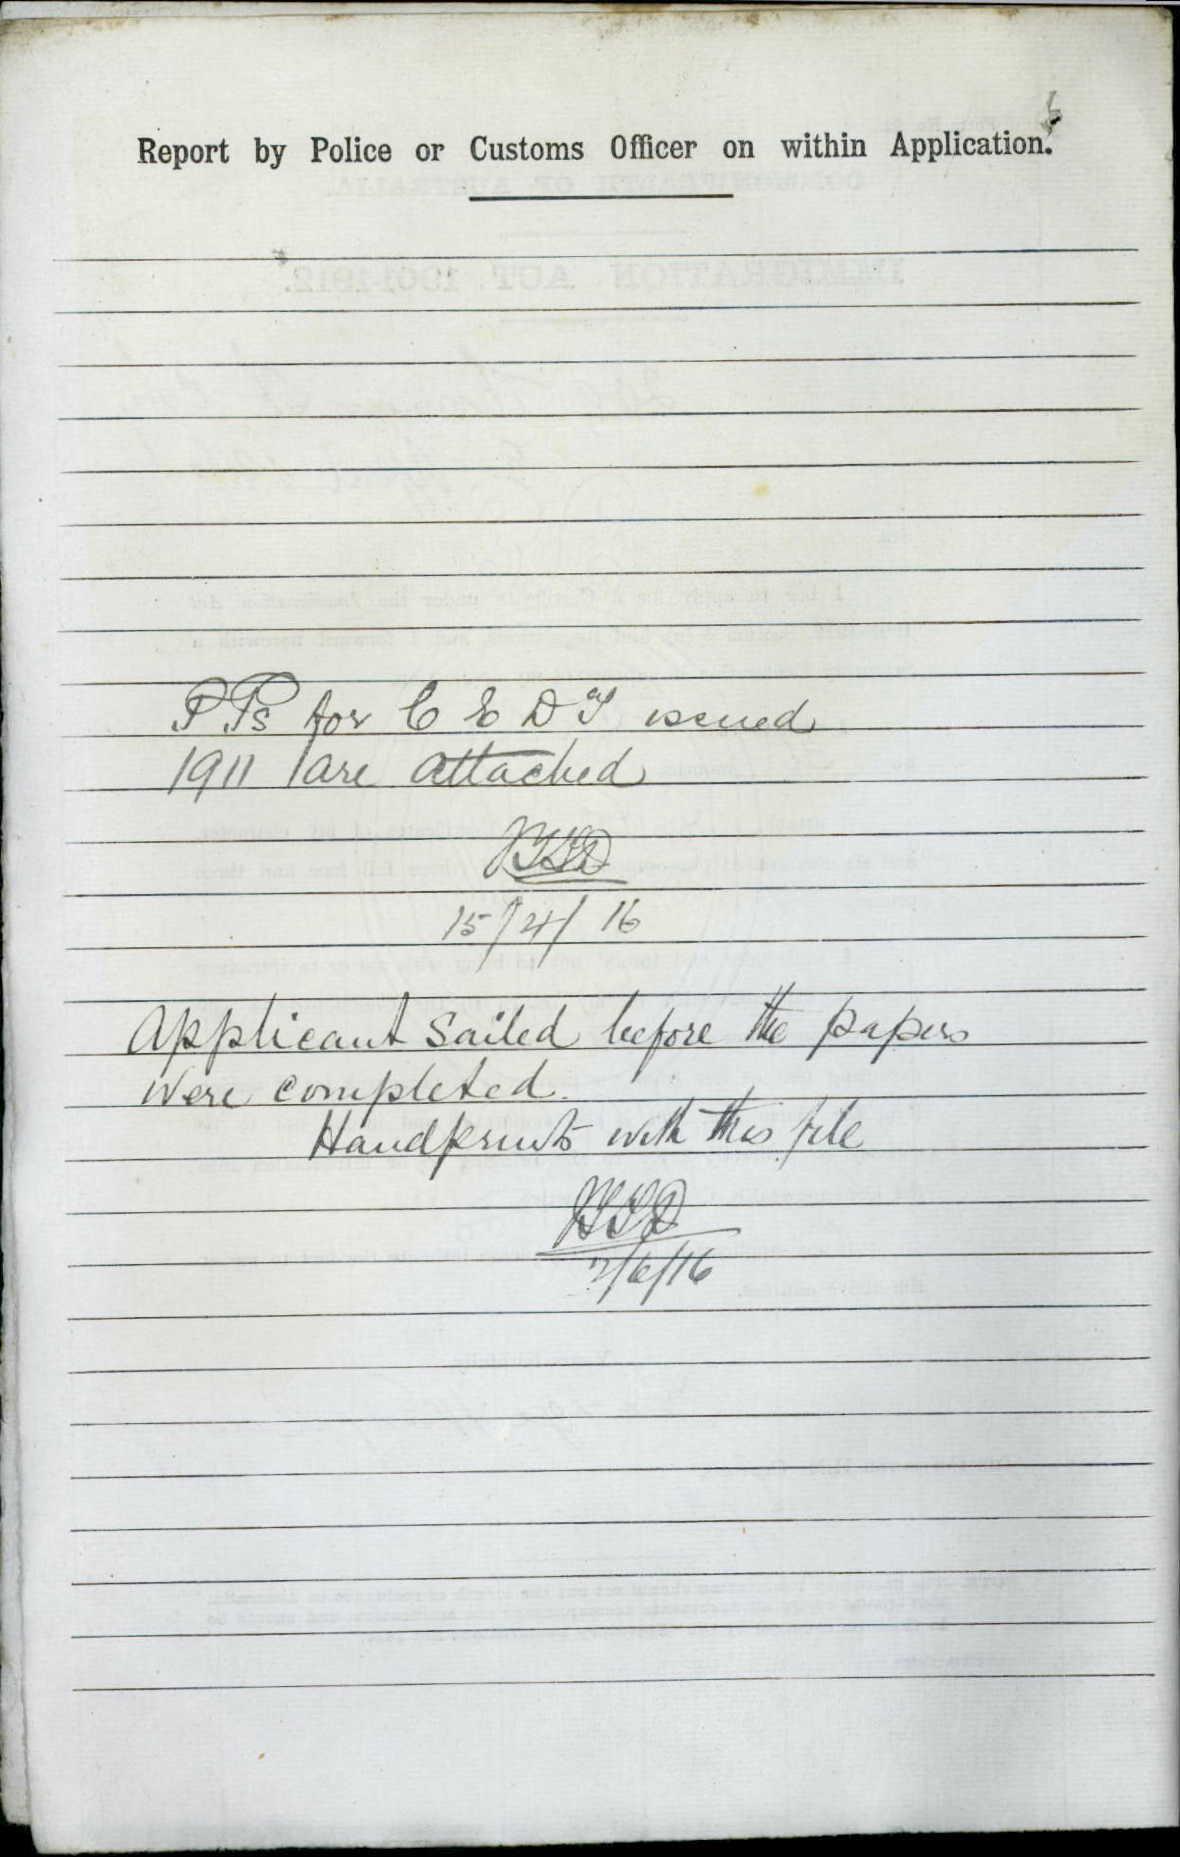 Report by Police or Customs Officer on within Application.
P Ps for C E D T issued
1911 are attached
15/4/16
Applicant sailed before the papers
were completed.
Handprints with this file
2/6/16